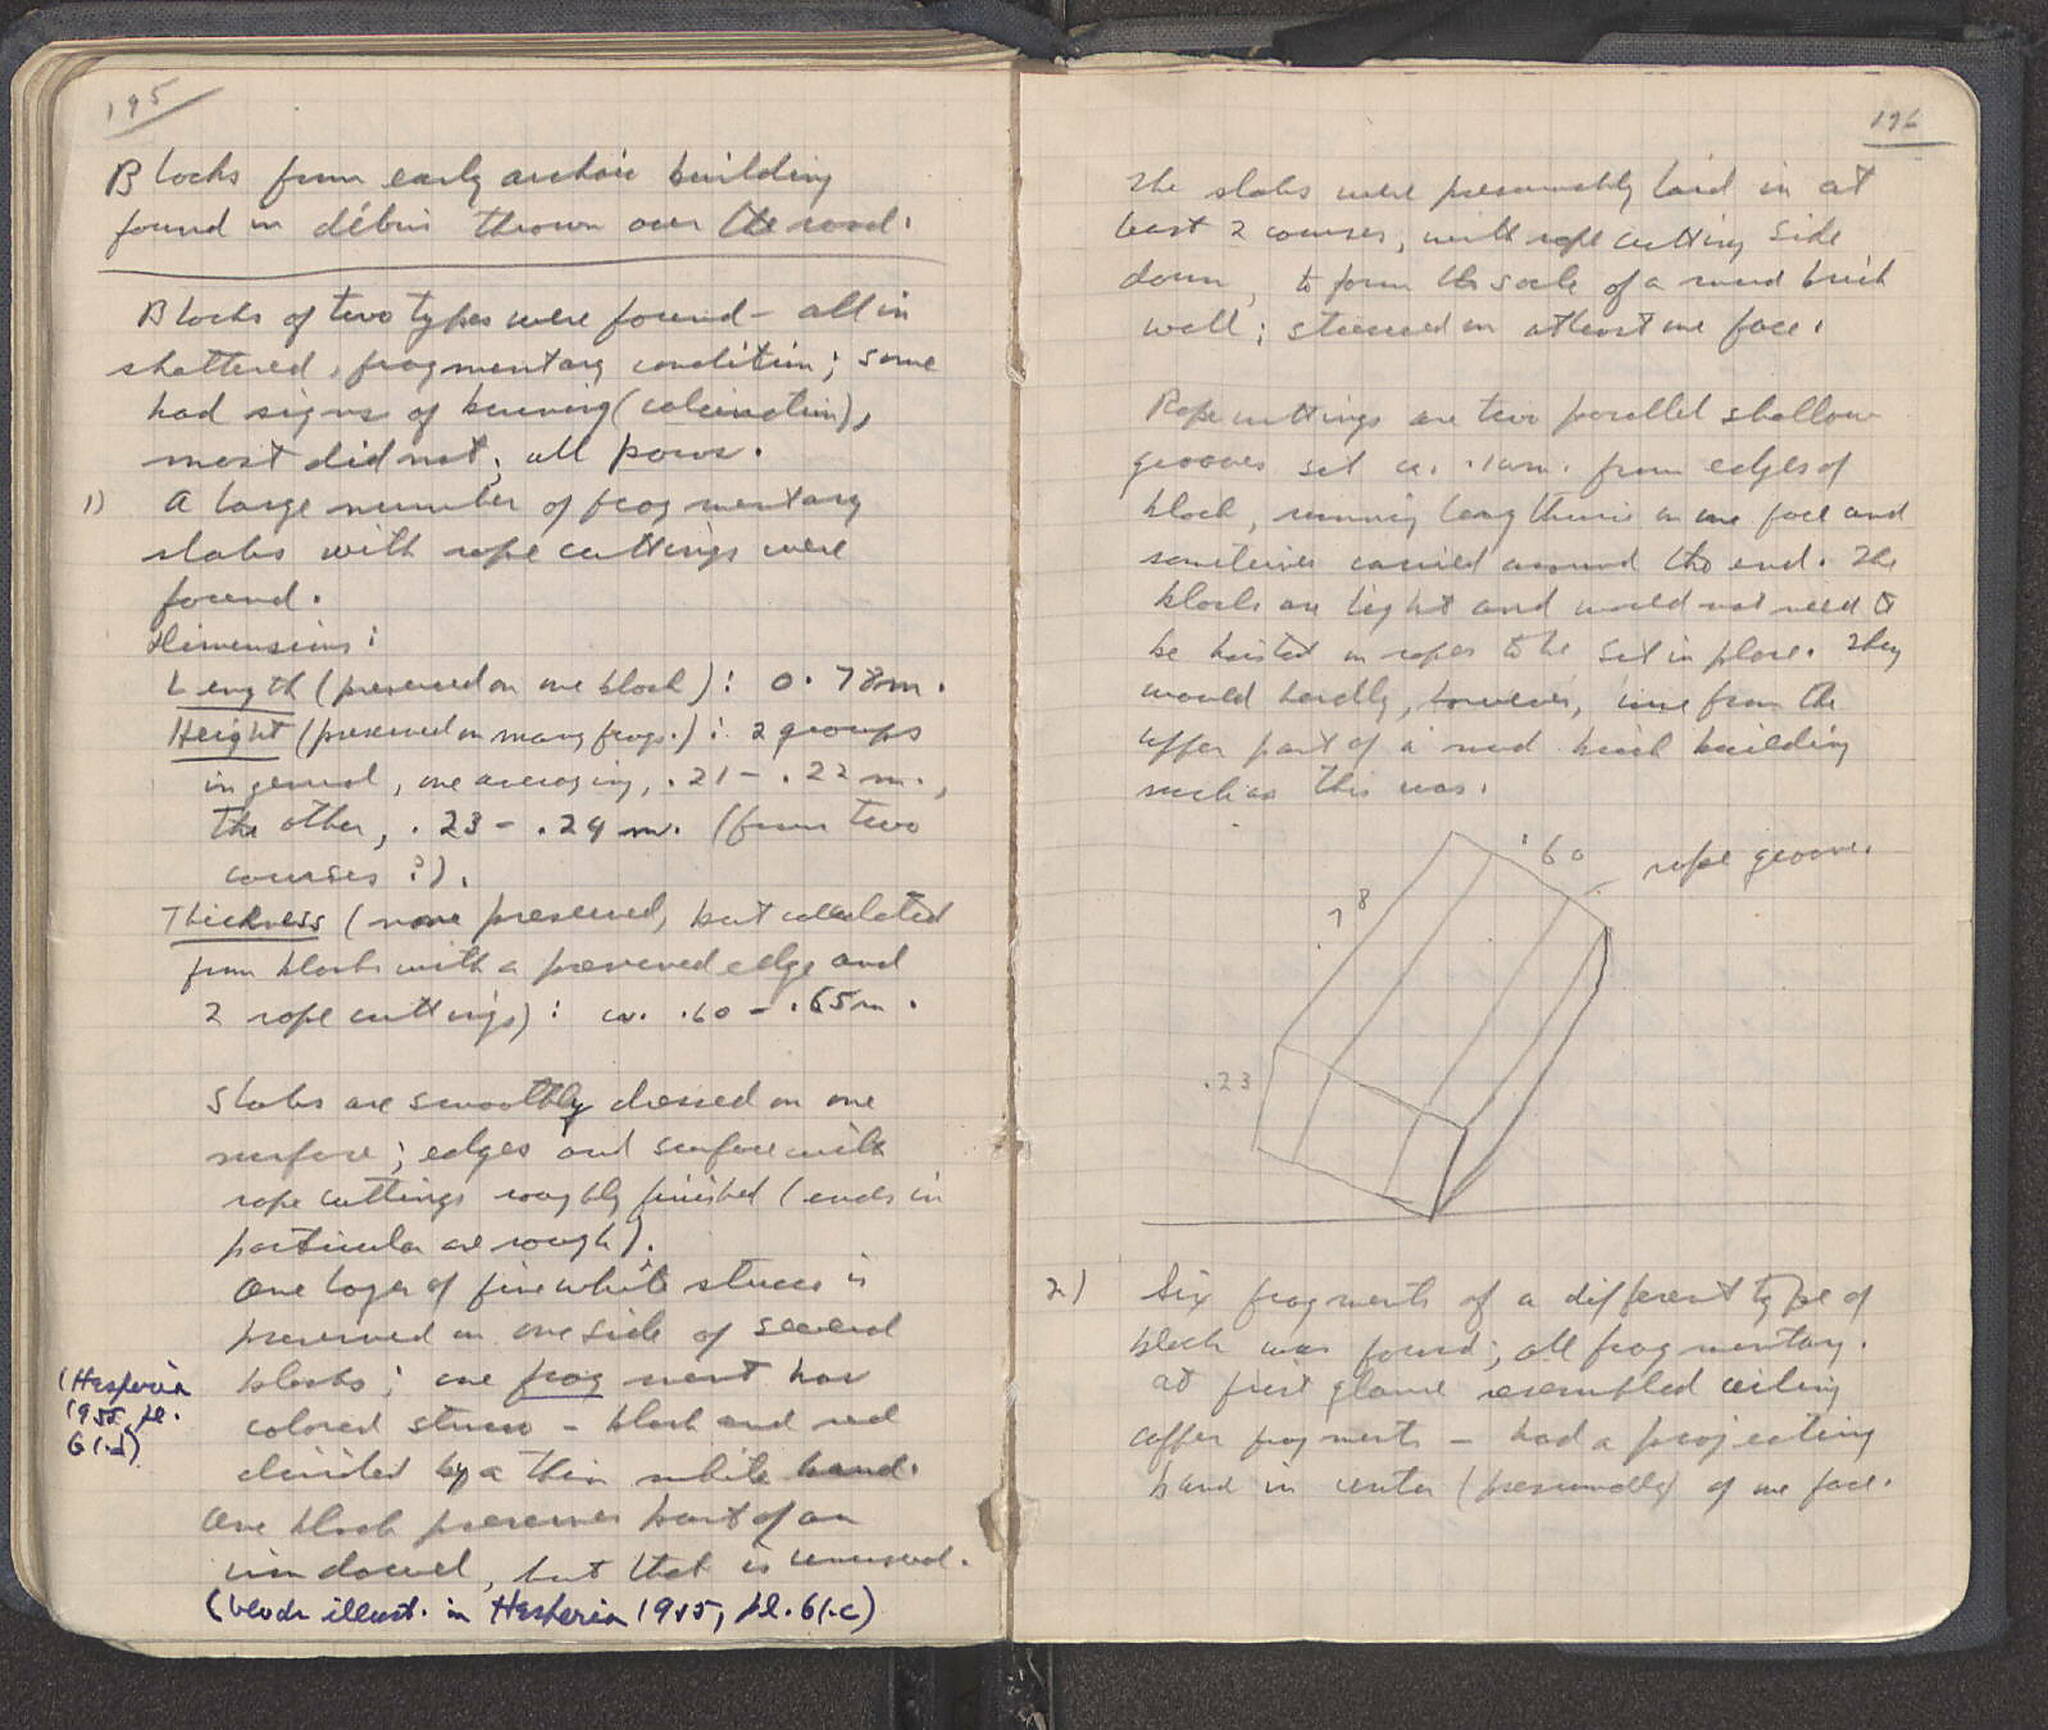 195
Blocks from early archaic building
found in débris thrown over the road.
Blocks of two types were found - all in
shattered, fragmentary condition; some
had signs of burning (calcination),
most did not; all poros.
1) A large number of fragmentary
slabs with rope cuttings were
found.
Dimensions:
Length (preserved on one block): 0.78m.
Height (preserved on many frags.): 2 groups
in general, one averaging, .21 - .22 m.,
the other, .23 - .24 m. (from two
courses?).
Thickness (none preserved, but calculated
from blocks with a preserved edge and
2 rope cuttings): ca. .60 - .65m.
Slabs are smoothly dressed on one
surface; edges and surface with
rope cuttings roughly finished (ends in
particular are rough).
One layer of fine white stucco is
preserved on one side of several
blocks; one fragment has
colored stucco - black and red
divided by a thin white band.
(Hesperia
1955, pl.
61.d)
One block preserves part of an
iron dowel, but that is unusual.
(block illust. in Hesperia 1955, pl. 61.c)
196
The slabs were presumably laid in at
least 2 courses, with rope cutting side
down, to form the socle of a mud brick
wall; stuccoed on at least one face.
Rope cuttings are two parallel shallow
grooves set ca. .10m. from edges of
block, running lengthwise on one face and
sometimes carried around the end. The
blocks are light and would not need to
be hoisted on ropes to be set in place. They
would hardly, however, come from the
upper part of a mud brick building
such as this was.
.60
rope groove.
.78
.23
2) Six fragments of a different type of
block was found; all fragmentary.
At first glance resembled ceiling
coffer fragments - had a projecting
band in center (presumably) of one face.